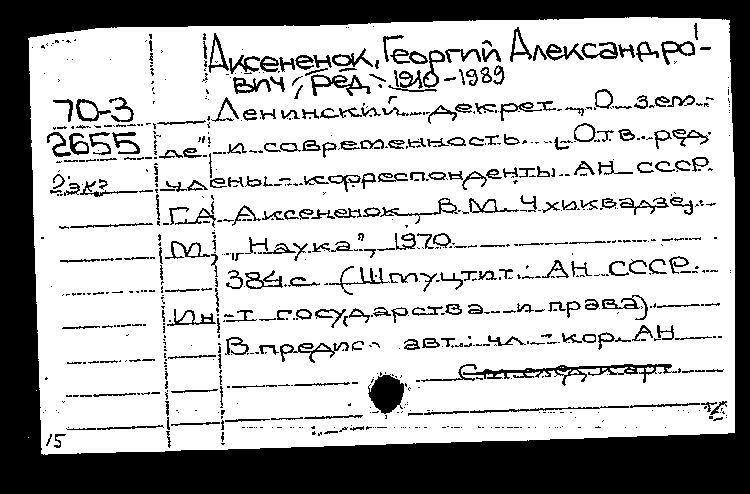 Аксененок, Георгий Александро-
вич, ред. 1910-1989
70-3 Ленинский декрет „О зем-
2655 ле" и современность. [Отв. ред.
2экз члены-корреспонденты АН СССР
Г.А. Аксененок, В.М. Чхиквадзе].
М., „Наука", 1970.
384 с. (Шмуцтит.: АН СССР.
Ин-т государства и права).
В предис. авт.: чл.-кор. АН
См. след. карт.
15